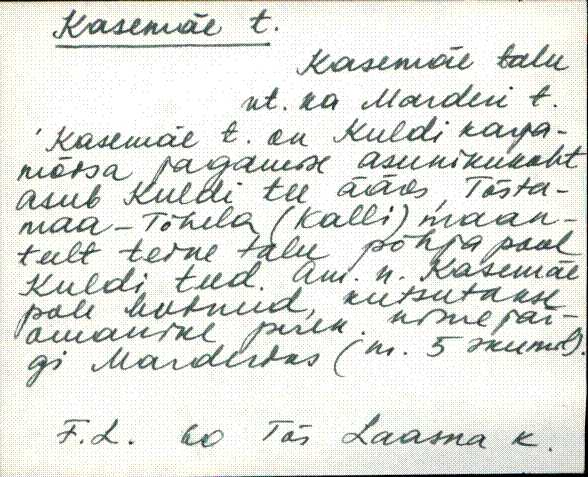 Kasemäe t.
Kasemäe talu
vt. ka Mardesi t.
'Kasemäe t. on Kuldi karja-
mõisa jagamise asunikukoht
asub Kuldi tee ääres, Tõsta-
maa-Tõhela (Kalli) maan-
teelt teine talu põhja pool
Kuldi teed. Am. n. Kasemäe
pole hotnud, kutsutakse
omanike perek. nime jär-
gi Mardestus (nr. 5 skeemil).
F.L. 60 Tõs Laasna k.